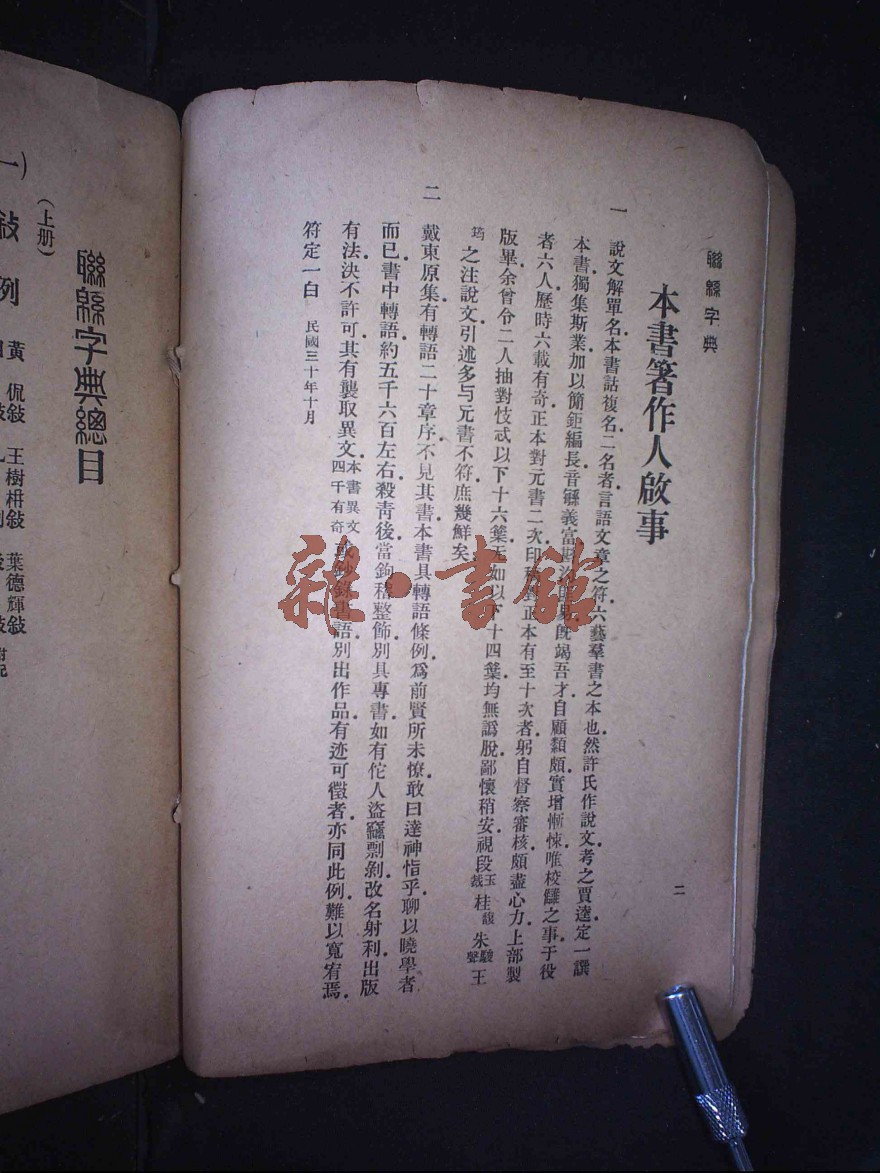 聯緜字典
二
本書箸作人啟事
一 說文解單名本書詁複名二名者言語文章之符六藝羣書之本也然許氏作說文考之賈逵定一譔
本書獨集斯業加以簡鉅編長音緐義富
旣竭吾才自顧纇頗實增慚悚唯校讎之事于役
者六人歷時六載有奇正本對元書二次印
正本有至十次者躬自督察審核頗盡心力上部製
版畢余曾令二人抽對忮忒以下十六葉无如以下十四葉均無譌脫鄙懷稍安視段玉裁桂馥朱駿聲王
筠之注說文引述多与元書不符庶幾鮮矣
二 戴東原集有轉語二十章序不見其書本書具轉語條例爲前賢所未憭敢曰達神恉乎聊以曉學者
而已書中轉語約五千六百左右殺靑後當鉤稽整飾別具專書如有佗人盜竊剽剝改名射利出版
有法決不許可其有襲取異文本書異文四千有奇或鈔錄
語別出作品有迹可徵者亦同此例難以寬宥焉
符定一白 民國三十年十月
聯緜字典總目
(上册)
敍例
黃侃敍 王樹枏敍 葉德輝敍
附記
雜·書館